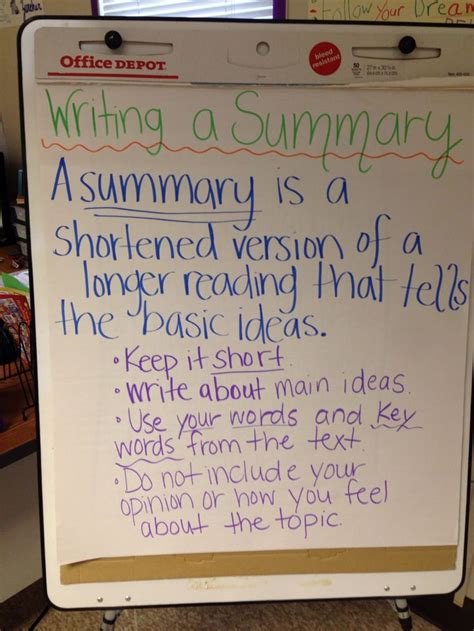 Follow Your Dream
Office DEPOT
bleed
resistant
50
Writing a Summary
A summary is a
shortened version of a
longer reading that tells
the basic ideas.
• Keep it short.
• Write about main ideas.
• Use your words and key
words from the text.
• Do not include your
opinion or how you feel
about the topic.